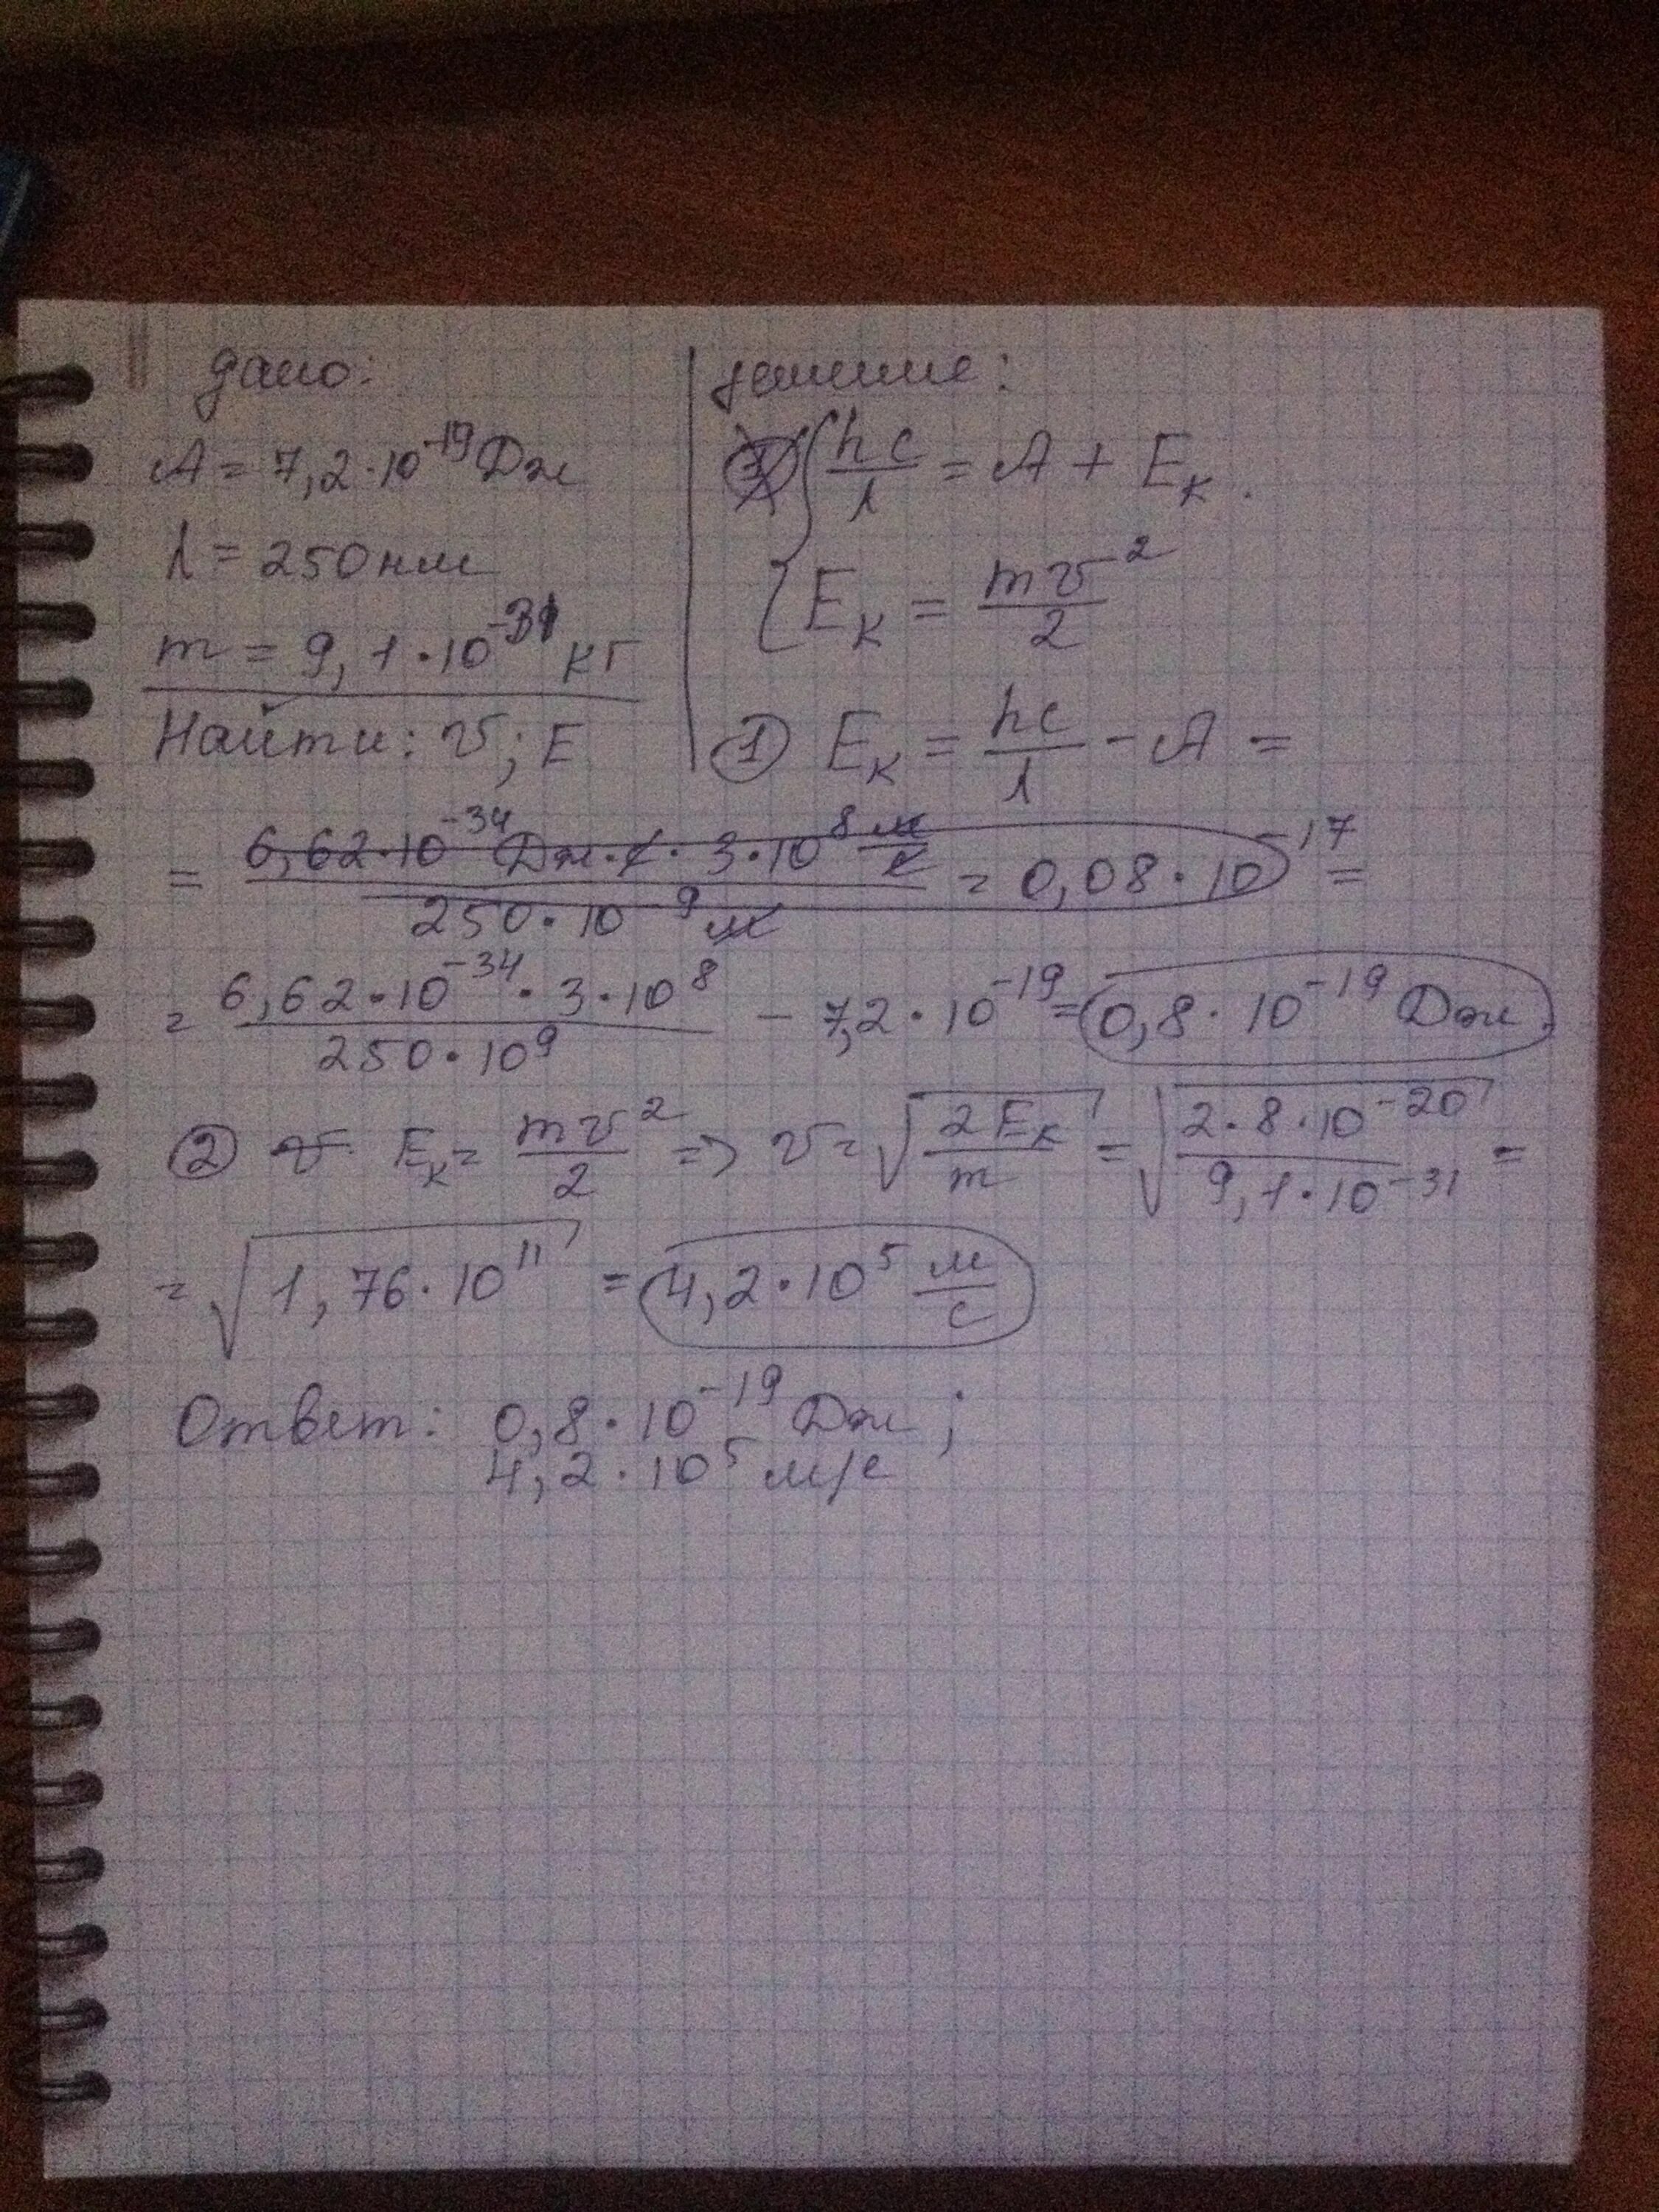 Дано:
A = 7,2·10⁻¹⁹ Дж
λ = 250 нм
m = 9,1·10⁻³¹ кг
Найти: v; E
решение:
{ hc/λ = A + Eк.
{ Eк = mv²/2
① Eк = hc/λ - A =
= 6,62·10⁻³⁴ Дж·с · 3·10⁸ м/с / 250·10⁻⁹ м = 0,08·10⁻¹⁷ =
= 6,62·10⁻³⁴ · 3·10⁸ / 250·10⁹ - 7,2·10⁻¹⁹ = 0,8·10⁻¹⁹ Дж.
② v Eк = mv²/2 => v = √(2Eк/m) = √(2·8·10⁻²⁰/9,1·10⁻³¹) =
= √(1,76·10¹¹) = 4,2·10⁵ м/с
Ответ: 0,8·10⁻¹⁹ Дж;
4,2·10⁵ м/с